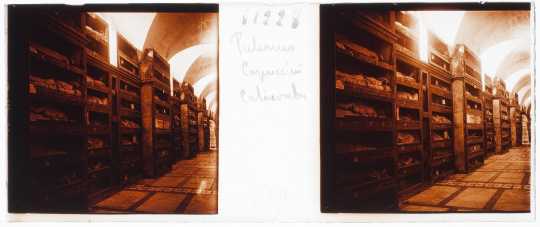 61228
Palermo
Capucini
Catacombes
289